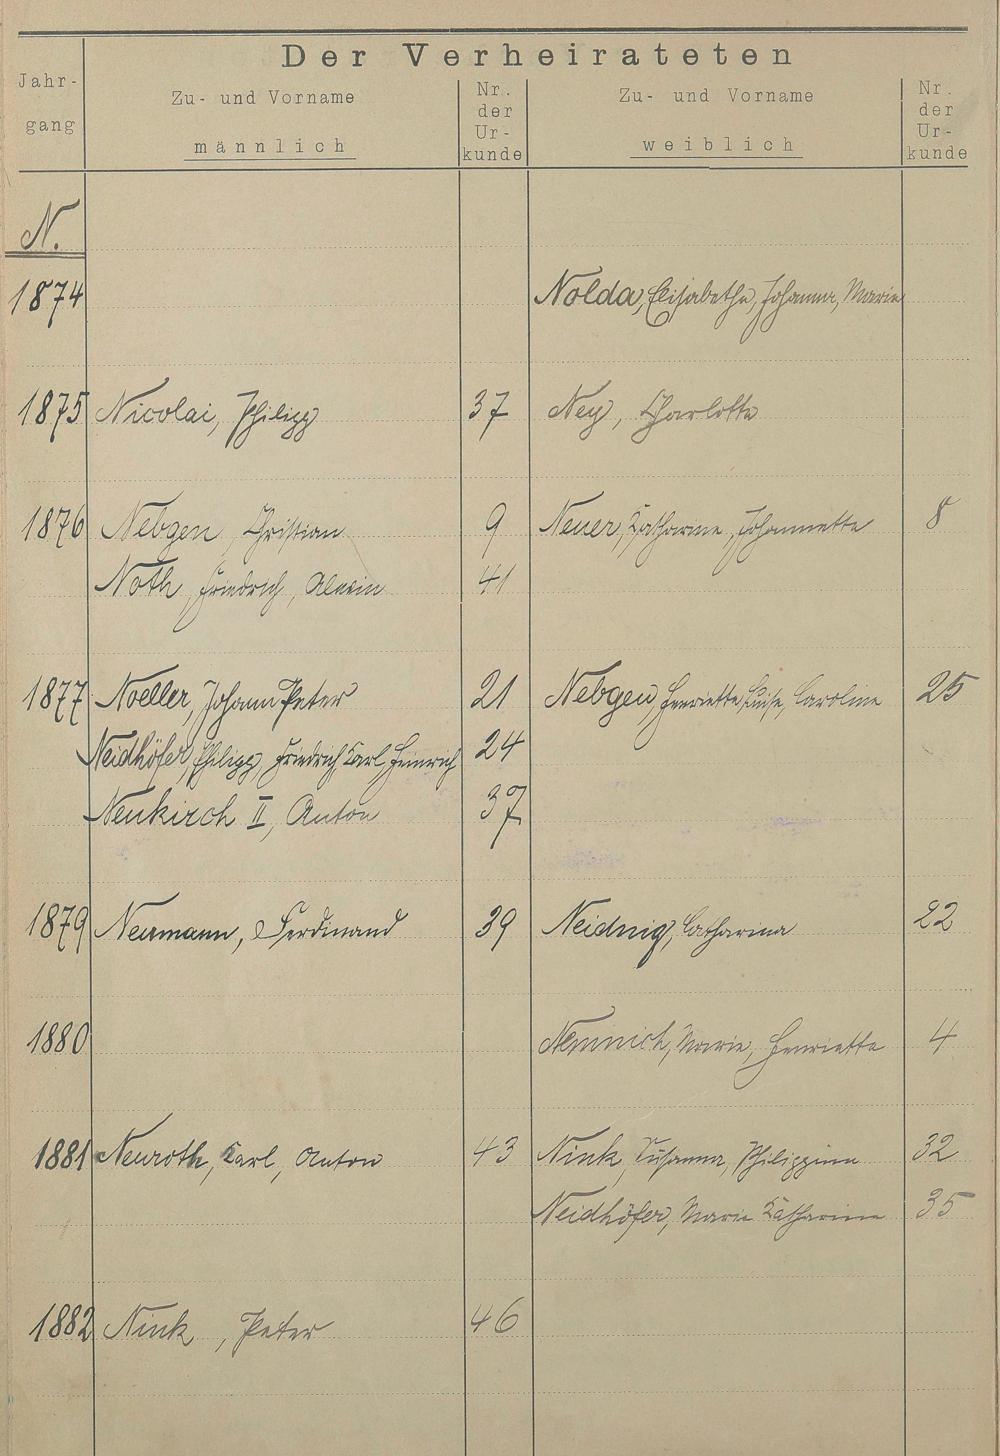 Der Verheirateten
Jahr-
gang
Zu- und Vorname
männlich
Nr.
der
Ur-
kunde
Zu- und Vorname
weiblich
Nr.
der
Ur-
kunde
N.
1874 Nolda, Elisabethe, Johanna, Marie
1875 Nicolai, Philipp 37 Ney, Charlotte
1876 Nebgen, Christian 9 Neuer, Katharine, Johannette 8
Noth, Friedrich, Alwin 41
1877 Noeller, Johann Peter 21 Nebgen, Henriette, Luise, Caroline 25
Neidhöfer, Philipp, Friedrich Karl Heinrich 24
Neukirch II, Anton 37
1879 Neumann, Ferdinand 39 Neidnig, Catharina 22
1880 Nemnich, Marie, Henriette 4
1881 Neuroth, Karl, Anton 43 Nink, Susanna, Philippine 32
Neidhöfer, Marie Katharine 35
1882 Nink, Peter 46